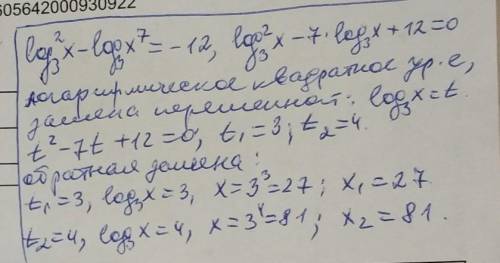 605642000930922
log₃²x - log₃x⁷ = -12, log₃²x - 7·log₃x + 12 = 0
логарифмическое квадратное ур-е,
замена переменной: log₃x = t.
t² - 7t + 12 = 0, t₁ = 3; t₂ = 4.
обратная замена:
t₁ = 3, log₃x = 3, x = 3³ = 27; x₁ = 27
t₂ = 4, log₃x = 4, x = 3⁴ = 81; x₂ = 81.